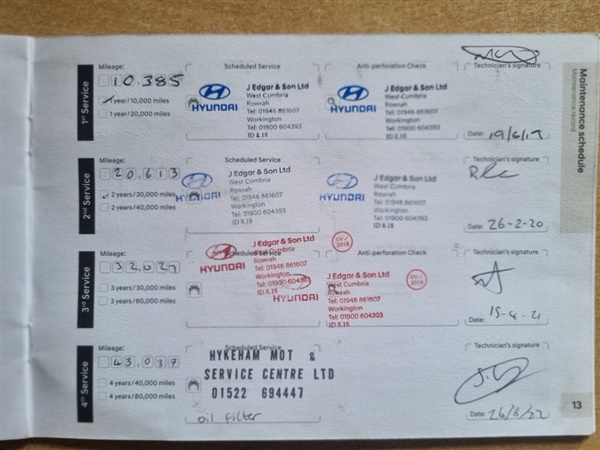 Maintenance schedule
Maintenance record
1st Service
Mileage:
10,385
1 year/10,000 miles
1 year/20,000 miles
Scheduled Service
HYUNDAI
J Edgar & Son Ltd
West Cumbria
Rowrah
Tel: 01946 861607
Workington
Tel: 01900 604393
ID 8.18
Anti-perforation Check
HYUNDAI
J Edgar & Son Ltd
West Cumbria
Rowrah
Tel: 01946 861607
Workington
Tel: 01900 604393
ID 8.18
Technician's signature
Date: 19/6/19
2nd Service
Mileage:
20,613
2 years/20,000 miles
2 years/40,000 miles
Scheduled Service
HYUNDAI
J Edgar & Son Ltd
West Cumbria
Rowrah
Tel: 01946 861607
Workington
Tel: 01900 604393
ID 8.18
HYUNDAI
J Edgar & Son Ltd
West Cumbria
Rowrah
Tel: 01946 861607
Workington
Tel: 01900 604393
ID 8.18
Technician's signature
Date: 26-2-20
3rd Service
Mileage:
3 years/30,000 miles
3 years/60,000 miles
HYUNDAI
J Edgar & Son Ltd
West Cumbria
Rowrah
Tel: 01946 861607
Workington
Tel: 01900 604393
ID 8.18
UV✓
2018
Anti-perforation Check
HYUNDAI
J Edgar & Son Ltd
West Cumbria
Rowrah
Tel: 01946 861607
Workington
Tel: 01900 604393
ID 8.18
UV✓
2018
Technician's signature
Date: 15-4-21
4th Service
Mileage:
43,037
4 years/40,000 miles
4 years/80,000 miles
Scheduled Service
HYKEHAM MOT &
SERVICE CENTRE LTD
01522 694447
oil filter
Technician's signature
Date: 26/8/22
13